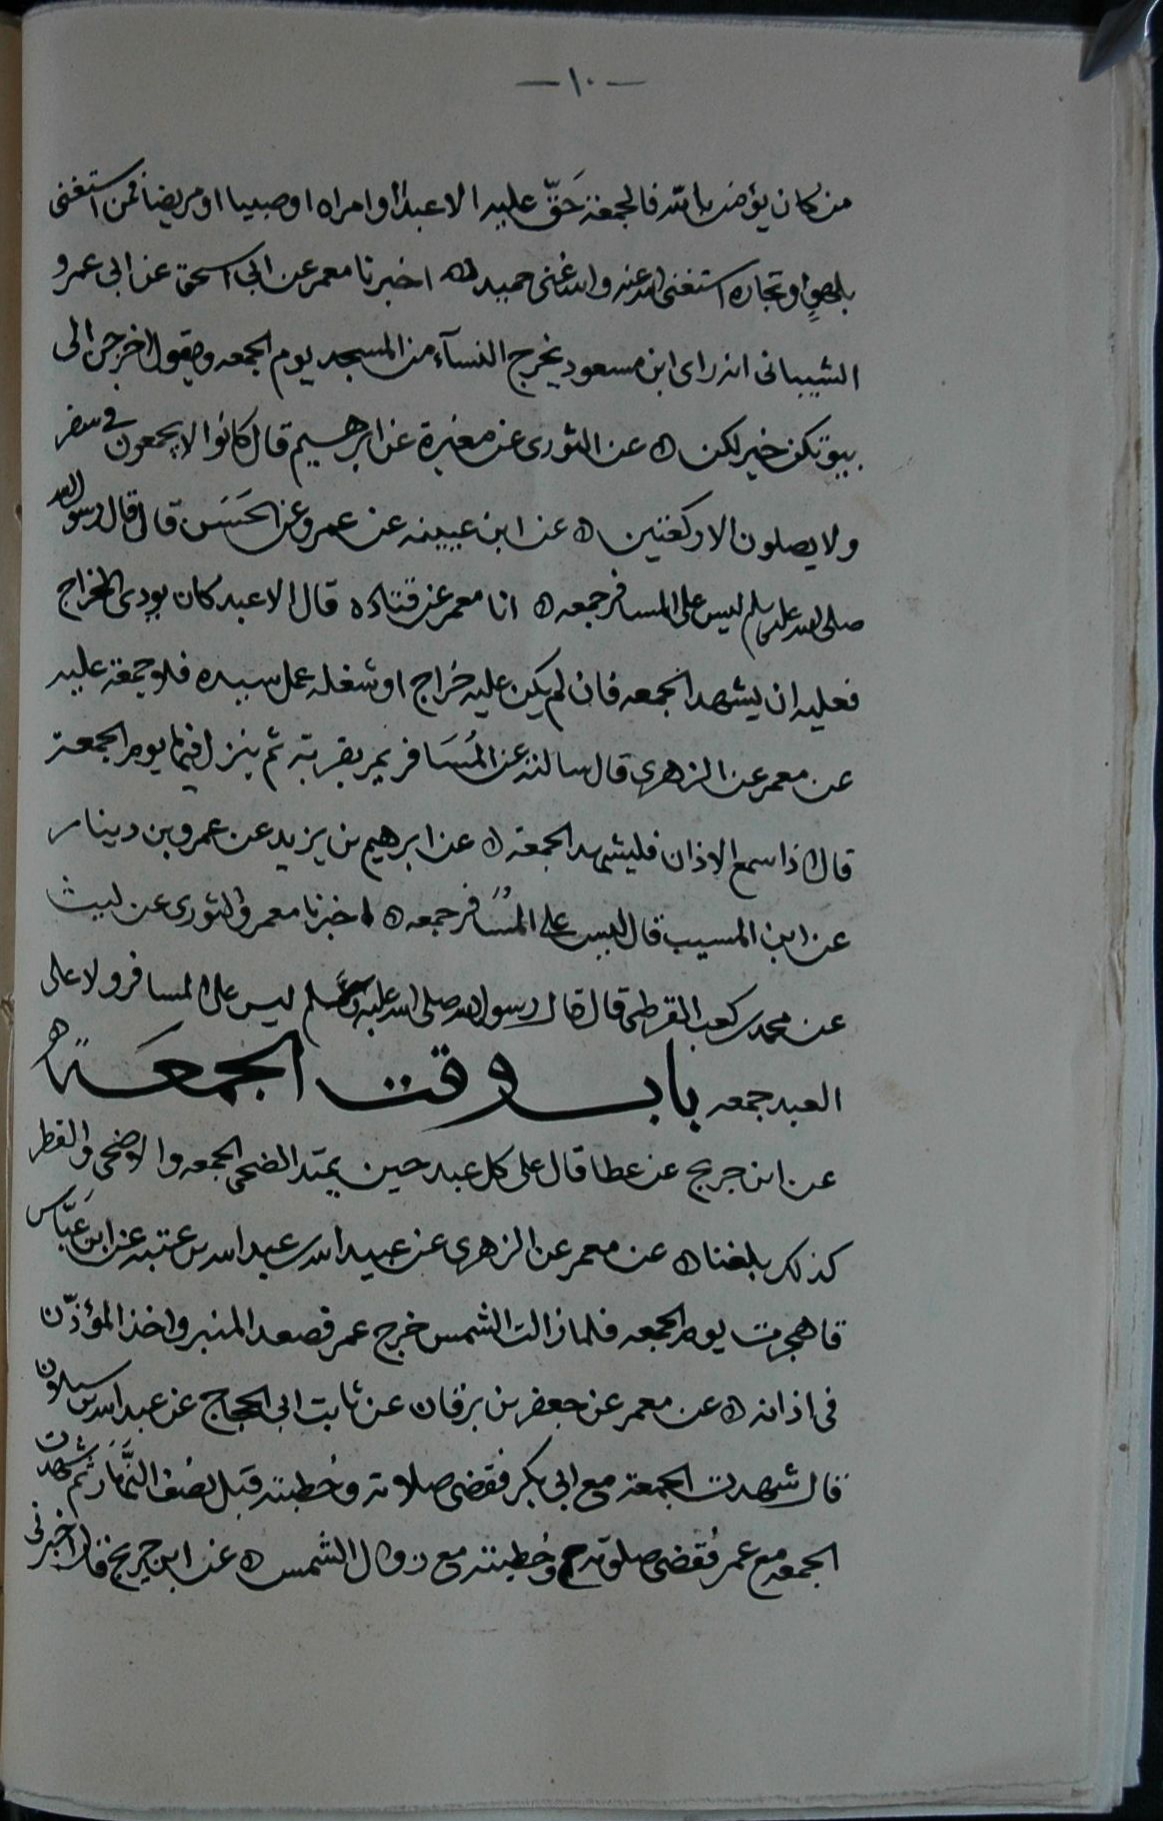 — ١٠ —
من كان يؤمن بالله فالجمعة حَقّ عليه الا عبدا او امراه او صبيا او مريضا فمن استغنى
بلهوٍ او تجاره استغنى الله عنه والله غنى حميد ه اخبرنا معمر عن ابى اسحق عن ابى عمرو
الشيبانى انه راى ابن مسعود يخرج النسآء من المسجد يوم الجمعه ويقول اخرجن الى
بيوتكن خير لكن ه عن الثورى عن مغيرة عن ابرهيم قال كانوا لا يجمعون فى سفر
ولا يصلون الا ركعتين ه عن ابن عيينه عن عمرو عن الحَسَن قال قال رسول الله
صلى الله عليه وسلم ليس على المسافر جمعه ه انا معمر عن قتاده قال الا عبد كان يودى الخراج
فعليه ان يشهد الجمعه فان لم يكن عليه خراج او شغله عمل سيده فلا جمعة عليه
عن معمر عن الزهرى قال سالته عن المُسَافر يمر بقرية ثم ينزل فيها يوم الجمعة
قال اذا سمع الاذان فليشهد الجمعة ه عن ابرهيم بن يزيد عن عمرو بن دينار
عن ابن المسيب قال ليس على المُسَافر جمعه ه اخبرنا معمر والثورى عن ليث
عن محمد بن كعب القرظى قال قال رسول الله صلى الله عليه وسلم ليس على المسافر ولا على
العبد جمعه باب وقت الجمعَة ه
عن ابن جريج عن عطا قال على كل عبد حين يمتد الضحى الجمعه والاضحى والفطر
كذلك بلغنا ه عن معمر عن الزهرى عن عبيد الله بن عبد الله بن عتبه عن ابن عَبَّاس
قا هجرت يوم الجمعه فلما زالت الشمس خرج عمر فصعد المنبر واخذ المؤذّن
فى اذانه ه عن معمر عن جعفر بن برقان عن ثابت ابى الحجاج عن عبد الله بن سيلان
قال شهدت الجمعة مع ابى بكر فقضى صلاته وخُطبته قبل نصف النَّهَار ثم شهدت
الجمعه مع عمر فقضى صلوته وخُطبته مع زوال الشمس ه عن ابن جريج قال اخبرنى